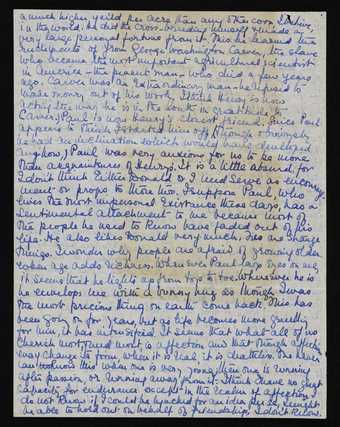 a much higher yield per acre than any other corn
in the world. he did the cross-breeding himself & made a
very large personal fortune from it. This he learned the
rudiments of from George Washington Carver, the slave
who became the most important agricultural scientist
in America – the peanut man – who died a few years
ago. Carver was an extraordinary man – he refused to
make money out of his work. I think Henry is now
acting the way he is in the South in gratitude to
Carver.) Paul is now Henry's closest friend. Since Paul
appears to think I started him off (though obviously
he had an inclination which would have developed
anyhow,) Paul was very anxious for me to be more
than as signature of Henry's. It is a little absurd, for
I don't think either Donald or I need serve as encourage-
ment or props to these two. I suppose Paul, who
lives the most impersonal existence these days, has a
sentimental attachment to me because most of
the people he used to know have faded out of his
life. He also likes Donald very much. These are strange
things. I wonder why people are afraid of growing older
when age adds richness. Whenever Paul lays eyes on me
it seems that he lights up from top to toe. Wherever he is
he envelops me with a bunny hug as though I was
the most precious thing on earth come back. This has
been going on for years, but as life becomes more gruelling
for him, it has intensified. It seems that what all of us
cherish most, and most is affection and that though affection
may change its form when it is real it is deathless. One never
can know this when one is very young when one is running
after passion, or running away from it. I think I have no great
capacity for endurance except in the realm of affection. I
do not know if I could be lynched for an idea, but I might
be able to hold out on behalf of friendship, I don't know.